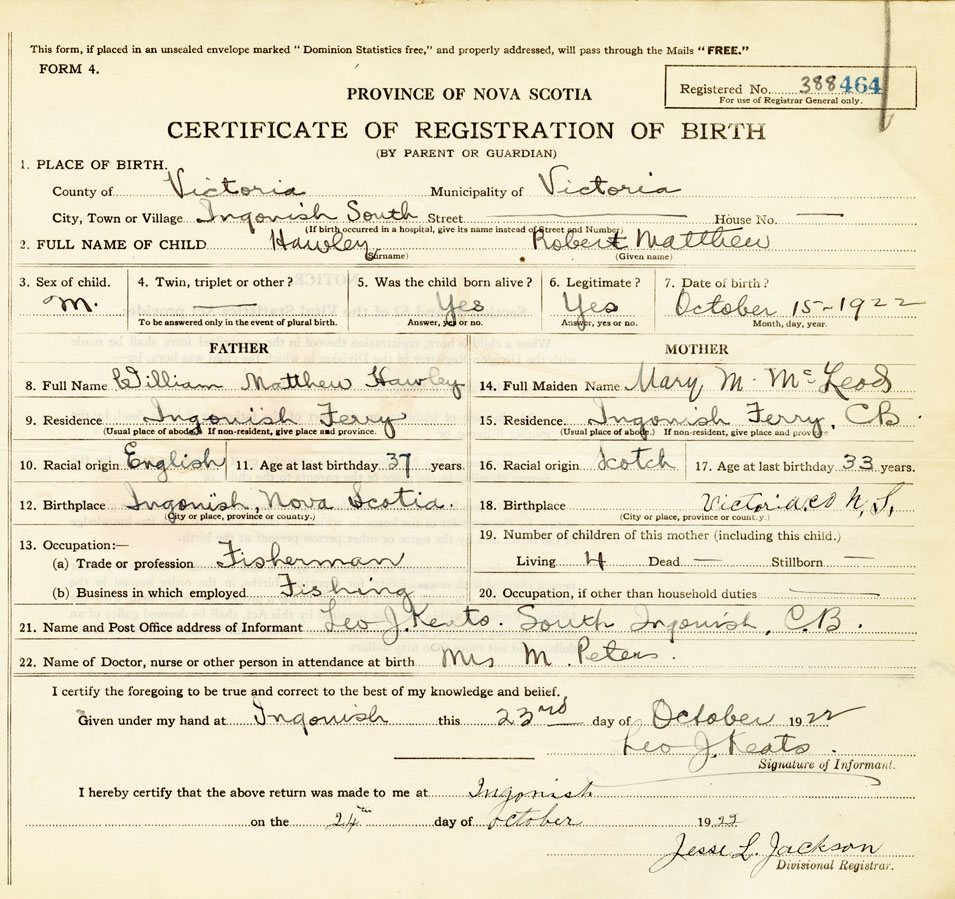 This form, if placed in an unsealed envelope marked "Dominion Statistics free," and properly addressed, will pass through the Mails "FREE."
FORM 4.
Registered No. 388464
For use of Registrar General only.
PROVINCE OF NOVA SCOTIA
CERTIFICATE OF REGISTRATION OF BIRTH
(BY PARENT OR GUARDIAN)
1. PLACE OF BIRTH.
County of Victoria Municipality of Victoria
City, Town or Village Ingonish South Street House No.
(If birth occurred in a hospital, give its name instead of Street and Number)
2. FULL NAME OF CHILD Hawley Robert Matthew
(Surname) (Given name)
3. Sex of child. 4. Twin, triplet or other? 5. Was the child born alive? 6. Legitimate? 7. Date of birth?
M. — Yes Yes October 15-1922
To be answered only in the event of plural birth. Answer, yes or no. Answer, yes or no. Month, day, year.
FATHER MOTHER
8. Full Name William Matthew Hawley 14. Full Maiden Name Mary M. McLeod
9. Residence Ingonish Ferry 15. Residence. Ingonish Ferry, CB.
(Usual place of abode.) If non-resident, give place and province. (Usual place of abode.) If non-resident, give place and province
10. Racial origin English 11. Age at last birthday 37 years. 16. Racial origin Scotch 17. Age at last birthday 33 years.
12. Birthplace Ingonish, Nova Scotia. 18. Birthplace Victoria co N, S,
(City or place, province or country.) (City or place, province or country.)
13. Occupation:— 19. Number of children of this mother (including this child.)
(a) Trade or profession Fisherman Living 4 Dead — Stillborn —
(b) Business in which employed Fishing 20. Occupation, if other than household duties —
21. Name and Post Office address of Informant Leo J. Keats. South Ingonish, C.B.
22. Name of Doctor, nurse or other person in attendance at birth Mrs M. Peters.
I certify the foregoing to be true and correct to the best of my knowledge and belief.
Given under my hand at Ingonish this 23rd day of October 1922
Leo J. Keats.
Signature of Informant.
I hereby certify that the above return was made to me at Ingonish
on the 24th day of October 1922
Jesse L. Jackson
Divisional Registrar.